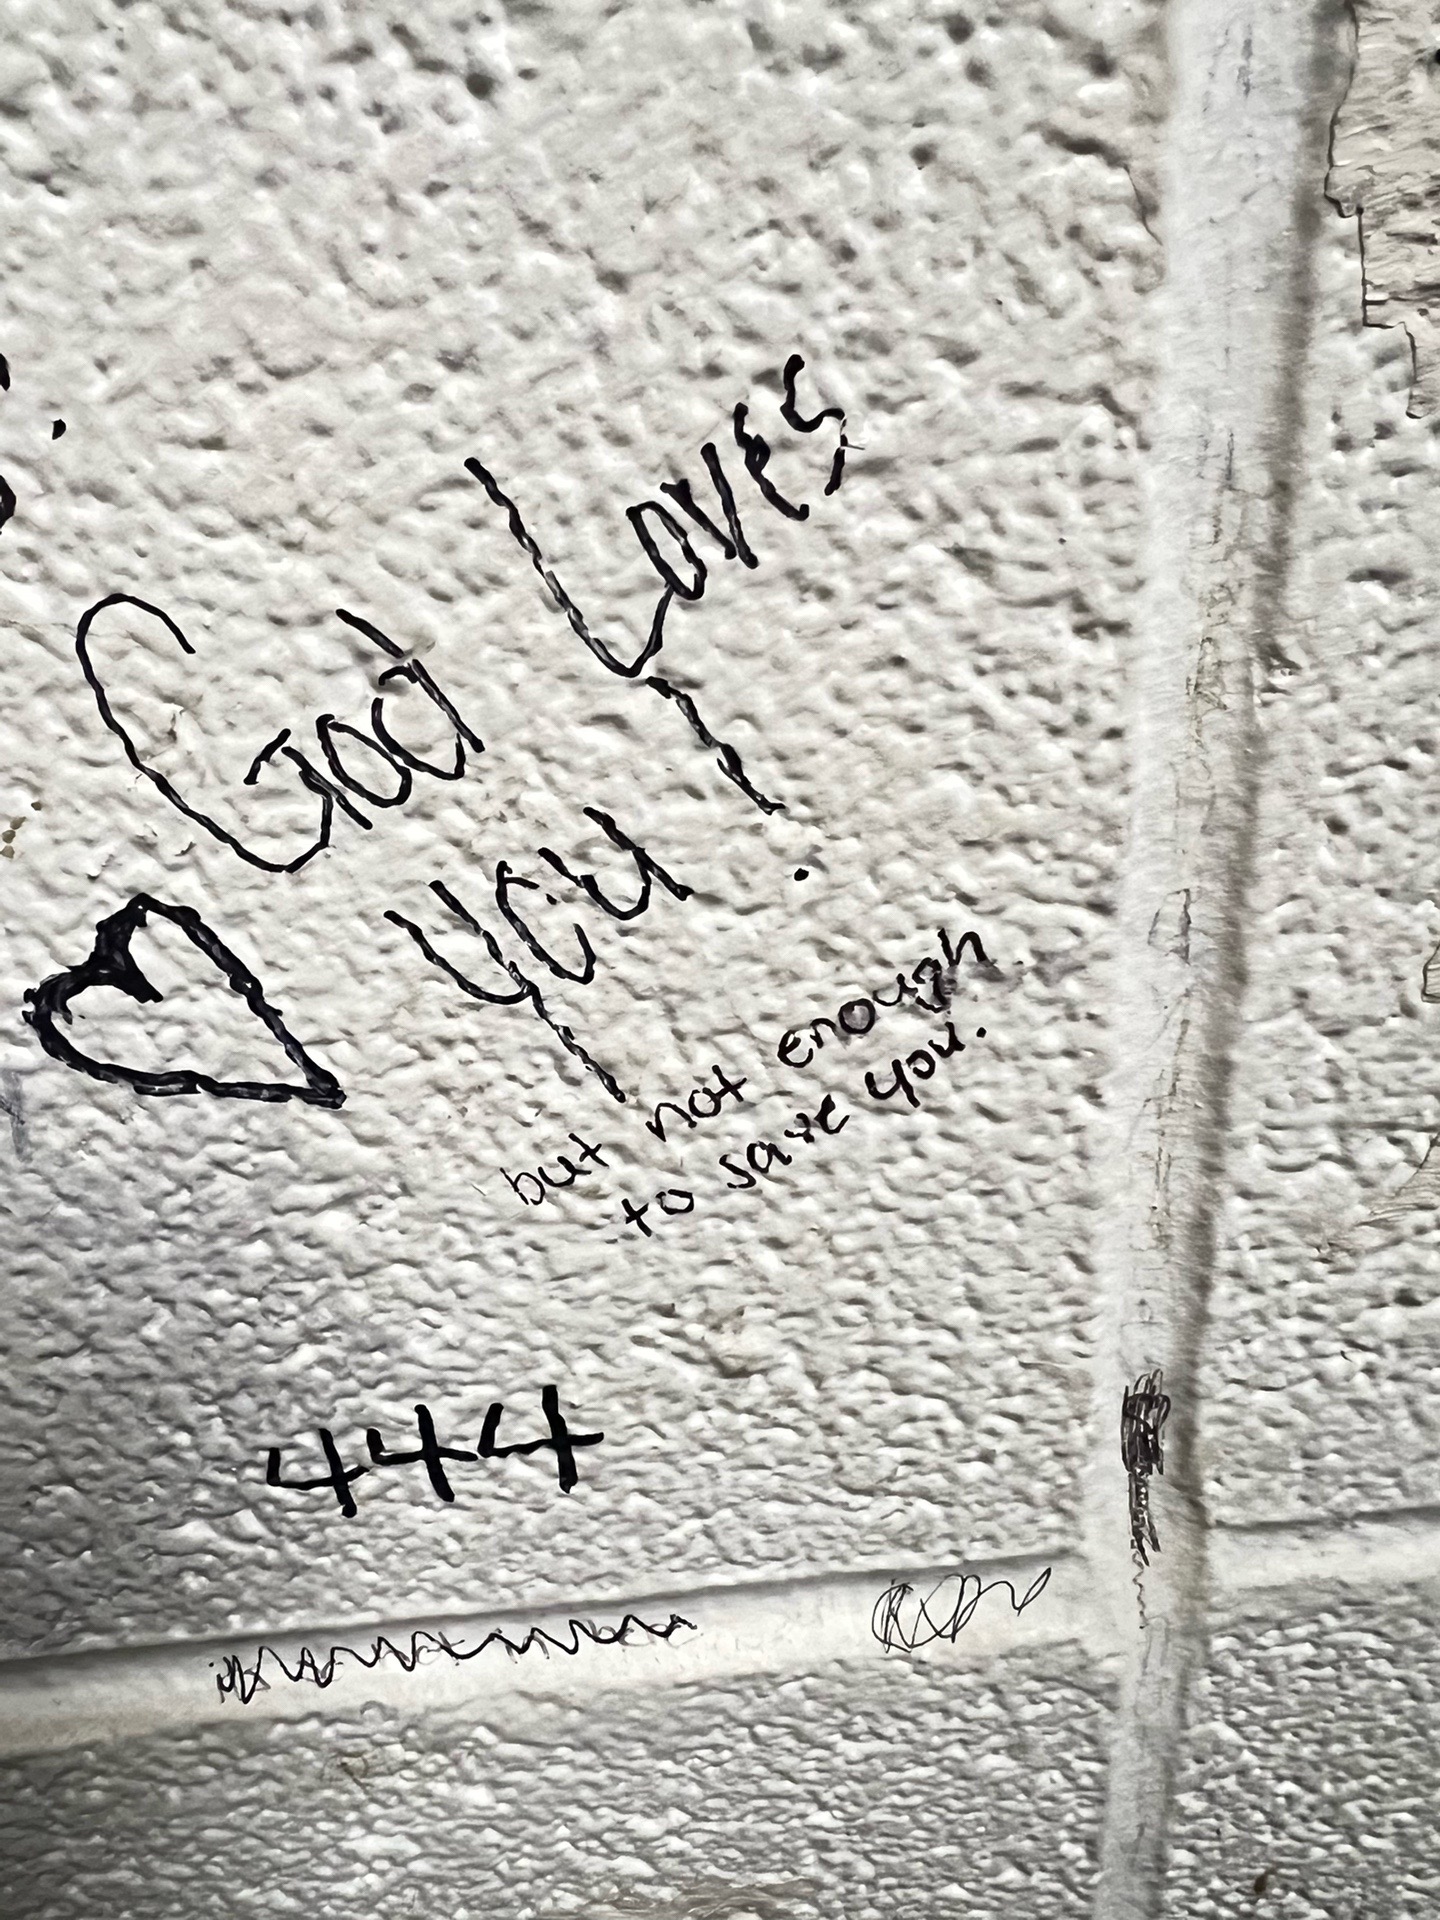 God Loves
you!
but not enough
to save you.
444